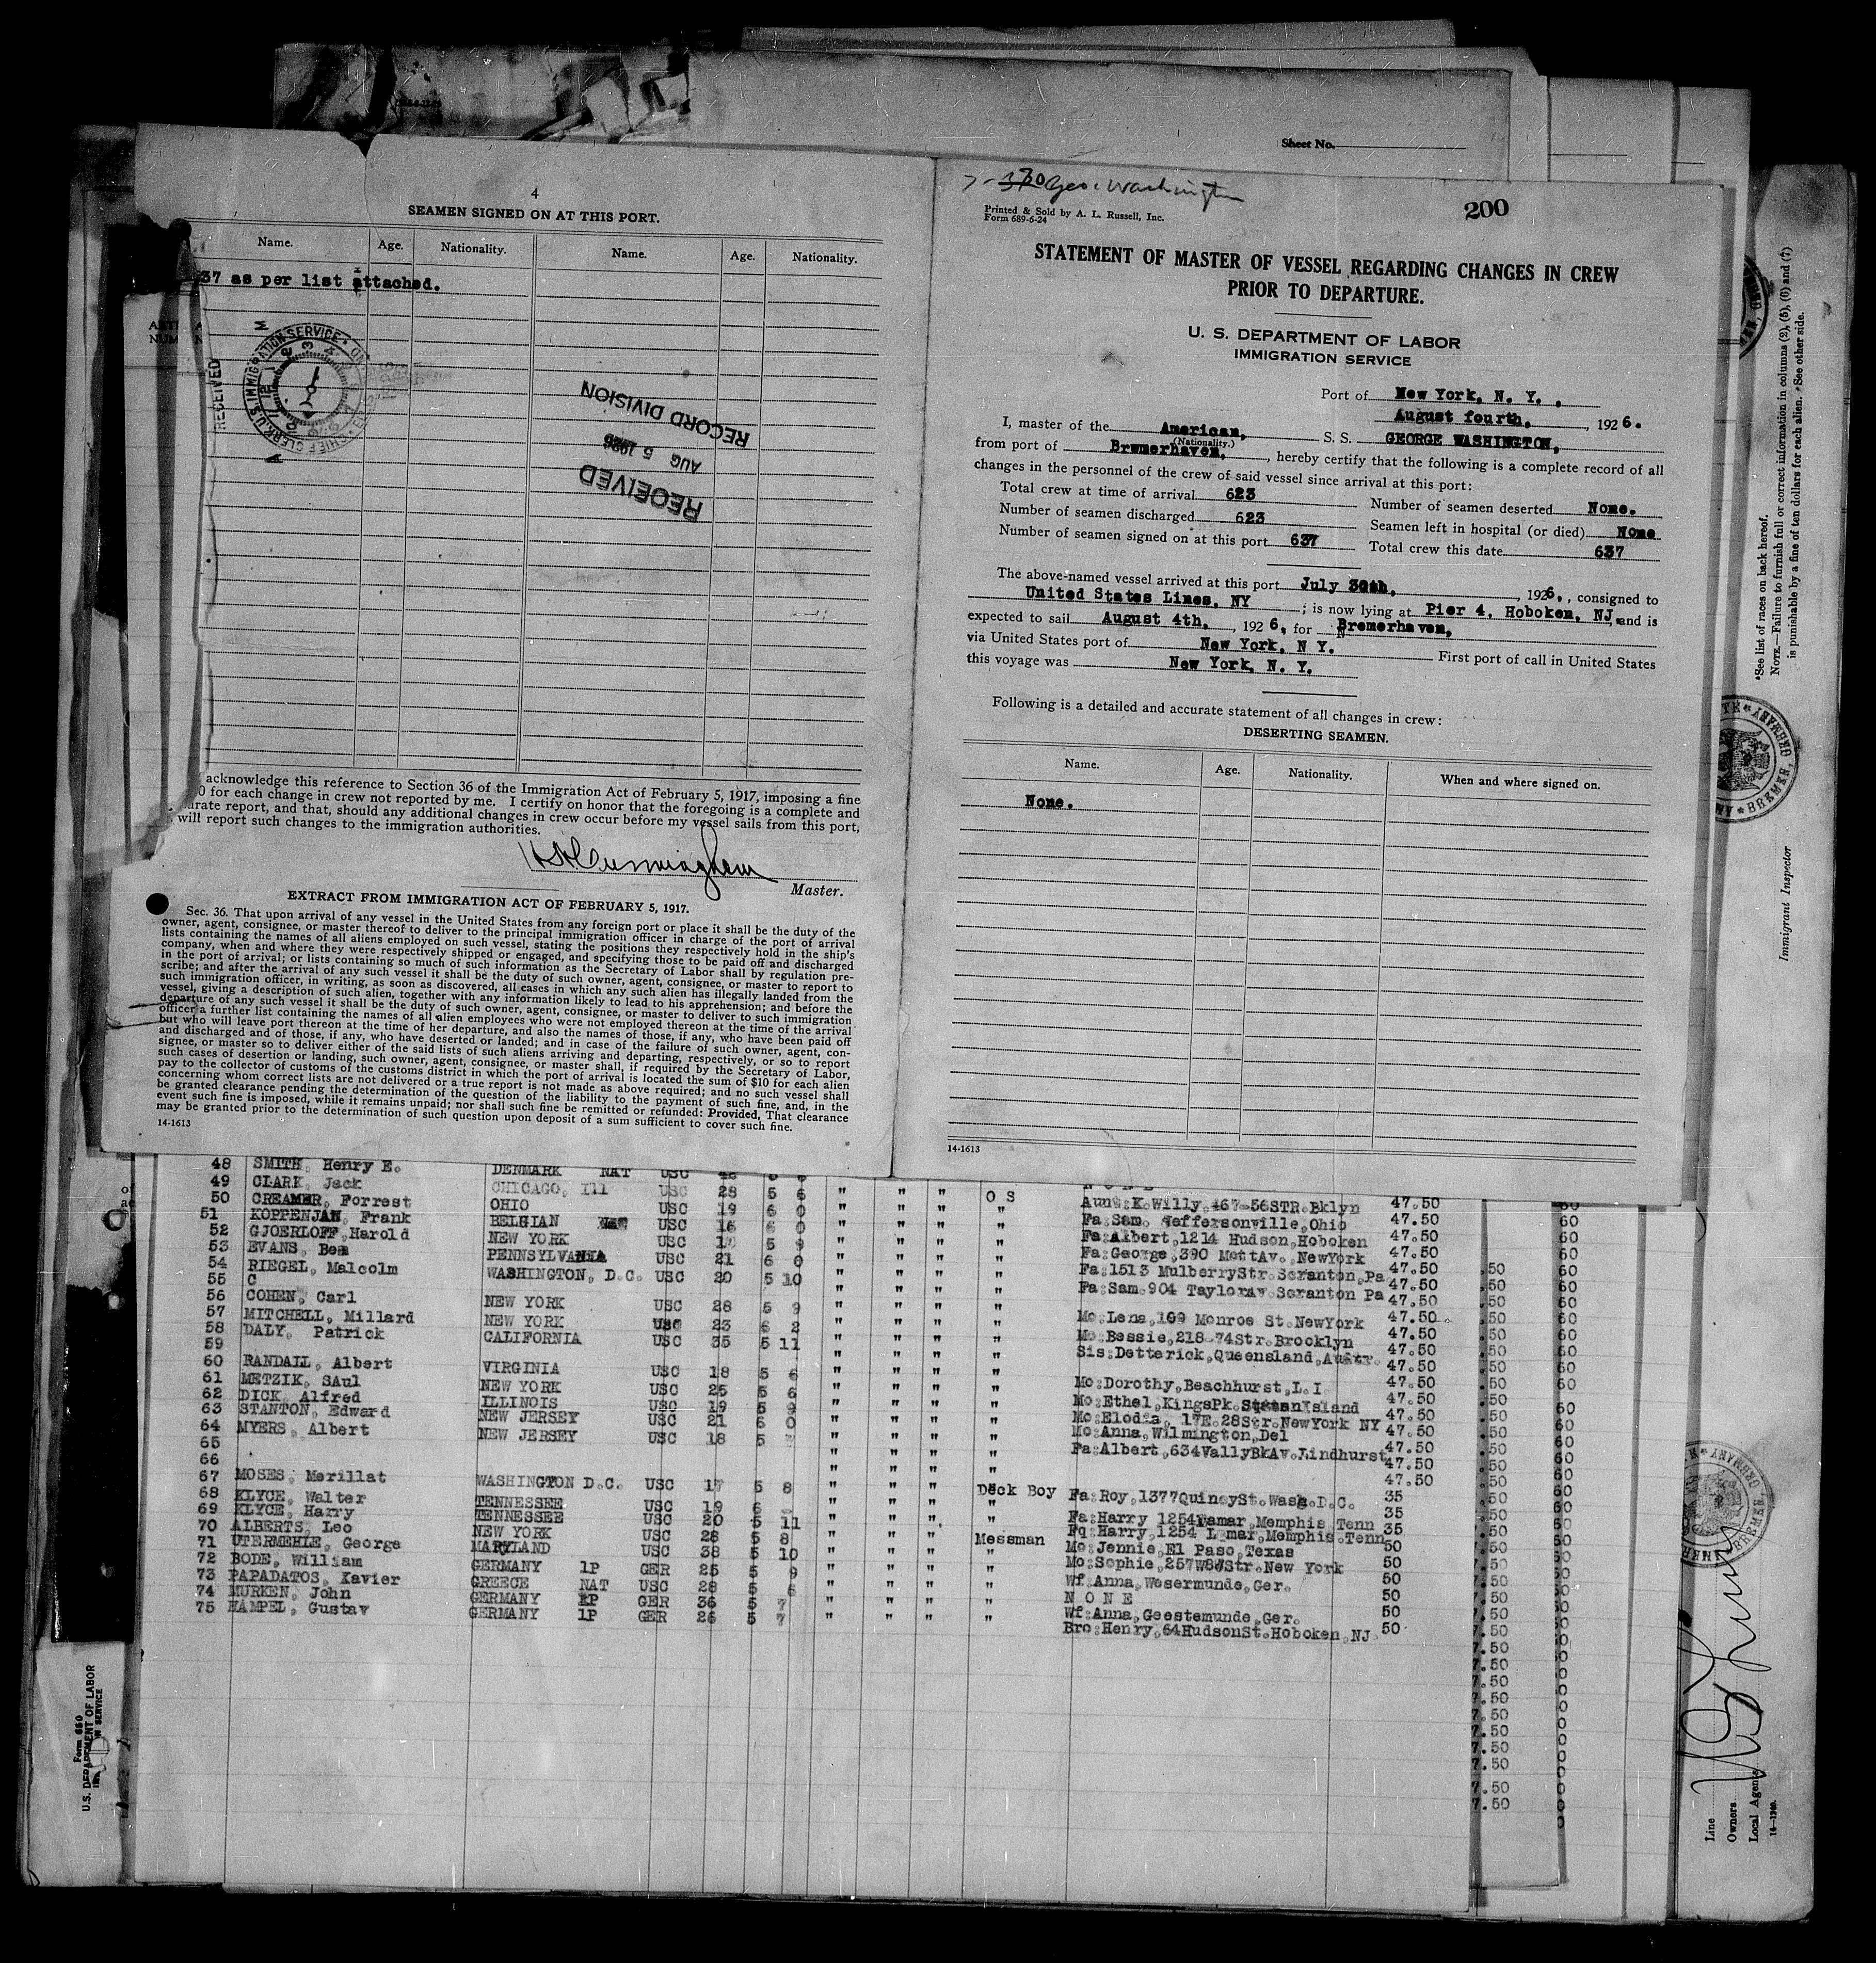 Sheet No.
4
SEAMEN SIGNED ON AT THIS PORT.
Name. Age. Nationality. Name. Age. Nationality.
37 as per list attached.
RECEIVED
U.S. IMMIGRATION SERVICE
CHIEF CLERK
RECORD DIVISION
AUG 5 1926
RECEIVED
acknowledge this reference to Section 36 of the Immigration Act of February 5, 1917, imposing a fine
0 for each change in crew not reported by me. I certify on honor that the foregoing is a complete and
urate report, and that, should any additional changes in crew occur before my vessel sails from this port,
will report such changes to the immigration authorities.
Cunningham
Master.
EXTRACT FROM IMMIGRATION ACT OF FEBRUARY 5, 1917.
Sec. 36. That upon arrival of any vessel in the United States from any foreign port or place it shall be the duty of the
owner, agent, consignee, or master thereof to deliver to the principal immigration officer in charge of the port of arrival
lists containing the names of all aliens employed on such vessel, stating the positions they respectively hold in the ship's
company, when and where they were respectively shipped or engaged, and specifying those to be paid off and discharged
in the port of arrival; or lists containing so much of such information as the Secretary of Labor shall by regulation pre-
scribe; and after the arrival of any such vessel it shall be the duty of such owner, agent, consignee, or master to report to
such immigration officer, in writing, as soon as discovered, all cases in which any such alien has illegally landed from the
vessel, giving a description of such alien, together with any information likely to lead to his apprehension; and before the
departure of any such vessel it shall be the duty of such owner, agent, consignee, or master to deliver to such immigration
officer a further list containing the names of all alien employees who were not employed thereon at the time of the arrival
but who will leave port thereon at the time of her departure, and also the names of those, if any, who have been paid off
and discharged and of those, if any, who have deserted or landed; and in case of the failure of such owner, agent, con-
signee, or master so to deliver either of the said lists of such aliens arriving and departing, respectively, or so to report
such cases of desertion or landing, such owner, agent, consignee, or master shall, if required by the Secretary of Labor,
pay to the collector of customs of the customs district in which the port of arrival is located the sum of $10 for each alien
concerning whom correct lists are not delivered or a true report is not made as above required; and no such vessel shall
be granted clearance pending the determination of the question of the liability to the payment of such fine, and, in the
event such fine is imposed, while it remains unpaid; nor shall such fine be remitted or refunded: Provided, That clearance
may be granted prior to the determination of such question upon deposit of a sum sufficient to cover such fine.
14-1613
Geo. Washington
200
Printed & Sold by A. L. Russell, Inc.
Form 689-6-24
STATEMENT OF MASTER OF VESSEL REGARDING CHANGES IN CREW
PRIOR TO DEPARTURE.
U. S. DEPARTMENT OF LABOR
IMMIGRATION SERVICE
Port of New York, N. Y. ,
August fourth, , 1926.
I, master of the American, S. S. GEORGE WASHINGTON,
(Nationality.)
from port of Bremerhaven, , hereby certify that the following is a complete record of all
changes in the personnel of the crew of said vessel since arrival at this port:
Total crew at time of arrival 623 Number of seamen deserted None.
Number of seamen discharged 623 Seamen left in hospital (or died) None
Number of seamen signed on at this port 637 Total crew this date 637
The above-named vessel arrived at this port July 30th, , 1926. , consigned to
United States Lines, NY ; is now lying at Pier 4, Hoboken, NJ, and is
expected to sail August 4th, , 1926, for Bremerhaven,
via United States port of New York, N Y. First port of call in United States
this voyage was New York, N. Y.
Following is a detailed and accurate statement of all changes in crew:
DESERTING SEAMEN.
Name. Age. Nationality. When and where signed on.
None.
14-1613
48 SMITH, Henry E. DENMARK NAT USC
49 CLARK, Jack CHICAGO, Ill USC 28 5 6 " " " O S Aun: K.Willy,467-56STR.Bklyn 47.50
50 CREAMER, Forrest OHIO USC 19 6 0 " " " " Fa:Sam. Jeffersonville,Ohio 47.50
51 KOPPENJAN, Frank BELGIAN USC 16 6 0 " " " " Fa:Albert,1214 Hudson,Hoboken 47.50
52 GJOERLOFF,Harold NEW YORK USC 5 9 " " " " Fa:George,390 MottAv. NewYork 47.50
53 EVANS, Ben PENNSYLVANIA USC 21 6 0 " " " " Fa:1513 MulberryStr.Scranton,Pa 47.50
54 RIEGEL, Malcolm WASHINGTON, D.C. USC 20 5 10 " " " " Fa:Sam.904 TaylorAv.Scranton Pa 47.50
55 C 47.50
56 COHEN, Carl NEW YORK USC 28 5 9 " " " " Mo:Lena,109 Monroe St.NewYork 47.50
57 MITCHELL, Millard NEW YORK USC 23 6 2 " " " " Mo:Bessie,218-74Str.Brooklyn 47.50
58 DALY, Patrick CALIFORNIA USC 35 5 11 " " " " Sis:Detterick,Queensland,Austr. 47.50
59 47.50
60 RANDALL, Albert VIRGINIA USC 18 5 6 " " " " Mo:Dorothy,Beachhurst,L.I. 47.50
61 METZIK, SAul NEW YORK USC 25 5 6 " " " " Mo:Ethel,KingsPk.StatenIsland 47.50
62 DICK, Alfred ILLINOIS USC 19 5 9 " " " " Mo:Elodia, 17E.28Str.NewYork NY 47.50
63 STANTON, Edward NEW JERSEY USC 21 6 0 " " " " Mo:Anna,Wilmington,Del 47.50
64 MYERS, Albert NEW JERSEY USC 18 5 " " " " Fa:Albert,634VallyBkAv.Lindhurst 47.50
65 " " " " 47.50
66 " " " " 47.50
67 MOSES, Merillat WASHINGTON D.C. USC 17 5 8 " " " Deck Boy Fa:Roy,1377QuincySt.Wash.D.C. 35
68 KLYCE, Walter TENNESSEE USC 19 6 " " " " Fa:Harry 1254Lamar,Memphis Tenn 35
69 KLYCE, Harry TENNESSEE USC 20 5 11 " " " " Fq:Harry,1254 L mar,Memphis.Tenn 35
70 ALBERTS, Leo NEW YORK USC 28 5 8 " " " Messman Mo:Jennie,El Paso,Texas 50
71 UTERMEHLE, George MARYLAND USC 38 5 10 " " " " Mo:Sophie,257W86Str.New York 50
72 BODE, William GERMANY 1P GER 25 5 9 " " " " Wf:Anna,Wesermunde,Ger. 50
73 PAPADATOS, Xavier GREECE NAT USC 28 5 6 " " " " N O N E 50
74 MURKEN, John GERMANY 1P GER 36 5 7 " " " " Wf:Anna,Geestemunde,Ger. 50
75 HAMPEL, Gustav GERMANY 1P GER 26 5 7 " " " " Bro:Henry,64HudsonSt.Hoboken,NJ 50
Form 680
U.S. DEPARTMENT OF LABOR
*See list of races on back hereof.
NOTE.—Failure to furnish full or correct information in columns (2), (5), (6) and (7)
is punishable by a fine of ten dollars for each alien. *See other side.
Immigrant Inspector
BREMEN, GERMANY
Line
Owners
Local Agents
14-1240.